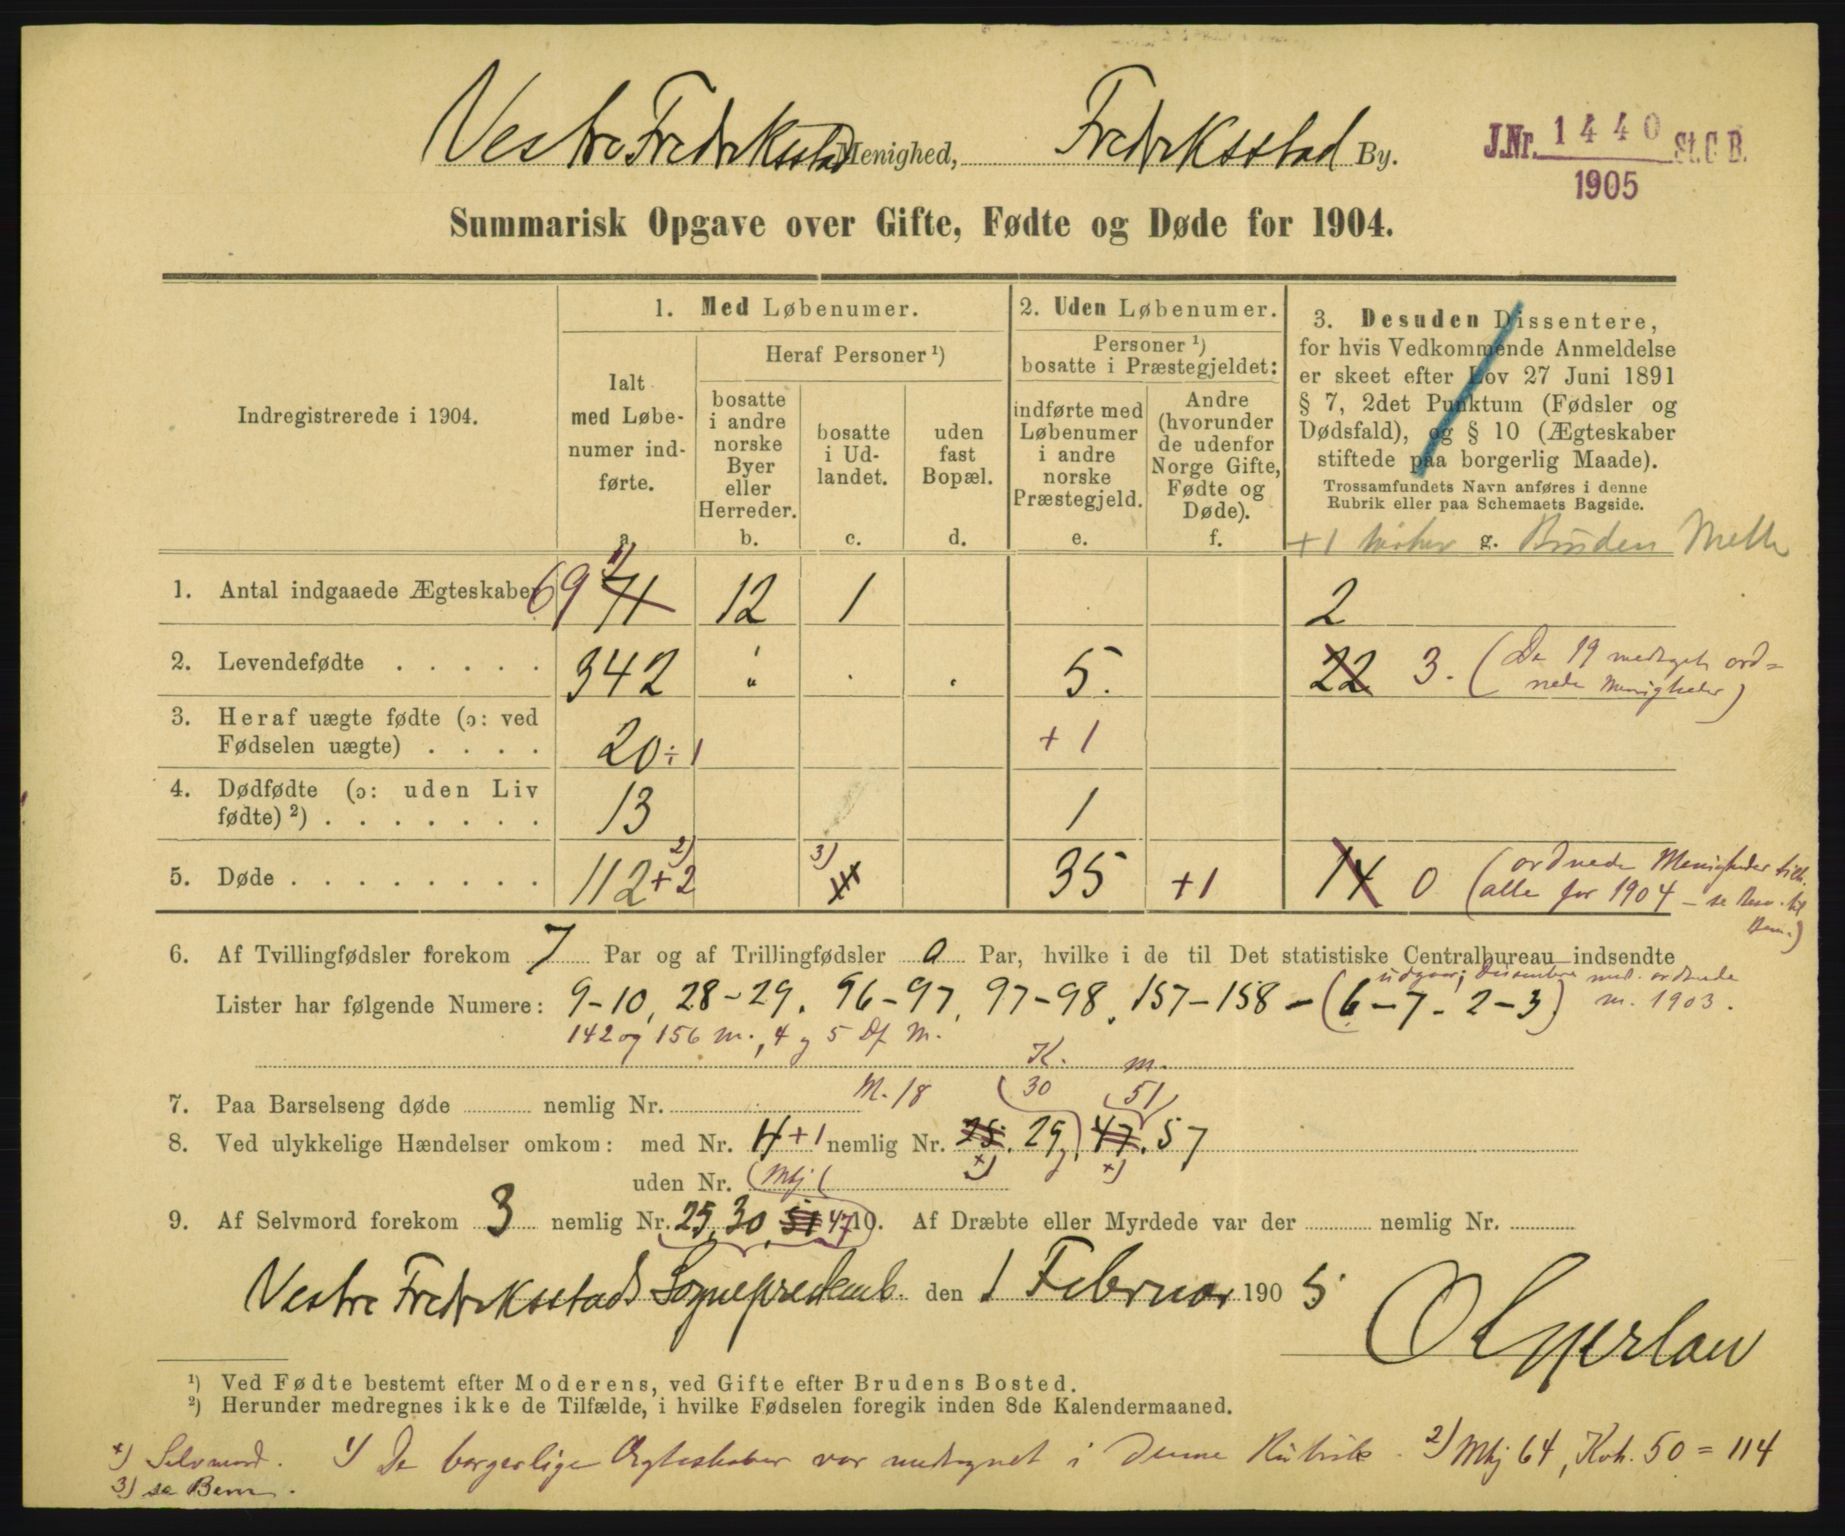 Vestre Fredriksstad Menighed, Fredriksstad By.
J.Nr. 1440 St.C.B.
1905
Summarisk Opgave over Gifte, Fødte og Døde for 1904.
Indregistrerede i 1904.
1. Med Løbenumer.
Ialt
med Løbe-
numer ind-
førte.
a.
Heraf Personer ¹)
bosatte
i andre
norske
Byer
eller
Herreder.
b.
bosatte
i Ud-
landet.
c.
uden
fast
Bopæl.
d.
2. Uden Løbenumer.
Personer ¹)
bosatte i Præstegjeldet:
indførte med
Løbenumer
i andre
norske
Præstegjeld.
e.
Andre
(hvorunder
de udenfor
Norge Gifte,
Fødte og
Døde).
f.
3. Desuden Dissentere,
for hvis Vedkommende Anmeldelse
er skeet efter Lov 27 Juni 1891
§ 7, 2det Punktum (Fødsler og
Dødsfald), og § 10 (Ægteskaber
stiftede paa borgerlig Maade).
Trossamfundets Navn anføres i denne
Rubrik eller paa Schemaets Bagside.
+1 g. Bruden
1. Antal indgaaede Ægteskaber 69 ¹) 71 12 1 2
2. Levendefødte . . . . . 342 " . . 5. 22 3. (De 19 medtaget ord=
nede Menigheder)
3. Heraf uægte fødte (ɔ: ved
Fødselen uægte) . . . . 20 ÷1 +1
4. Dødfødte (ɔ: uden Liv
fødte) ²) . . . . . . . 13 1
5. Døde . . . . . . . . 112 +2 ²) ³) 35 +1 14 0 (ordnede Menigheder
alle for 1904 – se Bem. til
Bem.)
6. Af Tvillingfødsler forekom 7 Par og af Trillingfødsler 0 Par, hvilke i de til Det statistiske Centralbureau indsendte
udgaar; Dissentere med. ordnede
Lister har følgende Numere: 9-10, 28-29. 96-97, 97-98, 157-158 - (6-7 - 2-3) m. 1903.
142 og 156 m., 4 og 5 Df. M.
K. m.
M. 18 30 51
7. Paa Barselseng døde nemlig Nr.
8. Ved ulykkelige Hændelser omkom: med Nr. 4 +1 nemlig Nr. 25. 29, 47. 57
×) ×)
uden Nr.
Mkj
9. Af Selvmord forekom 3 nemlig Nr. 25, 30, 51 47 10. Af Dræbte eller Myrdede var der nemlig Nr.
Vestre Fredriksstads Sogneprestemb. den 1 Februar 1905
¹) Ved Fødte bestemt efter Moderens, ved Gifte efter Brudens Bosted.
²) Herunder medregnes ikke de Tilfælde, i hvilke Fødselen foregik inden 8de Kalendermaaned.
×) Selvmord. ¹) De borgerlige Ægteskaber var medregnet i denne Rubrik. ²) Mkj 64, Kvk. 50 = 114
³) se Bem.